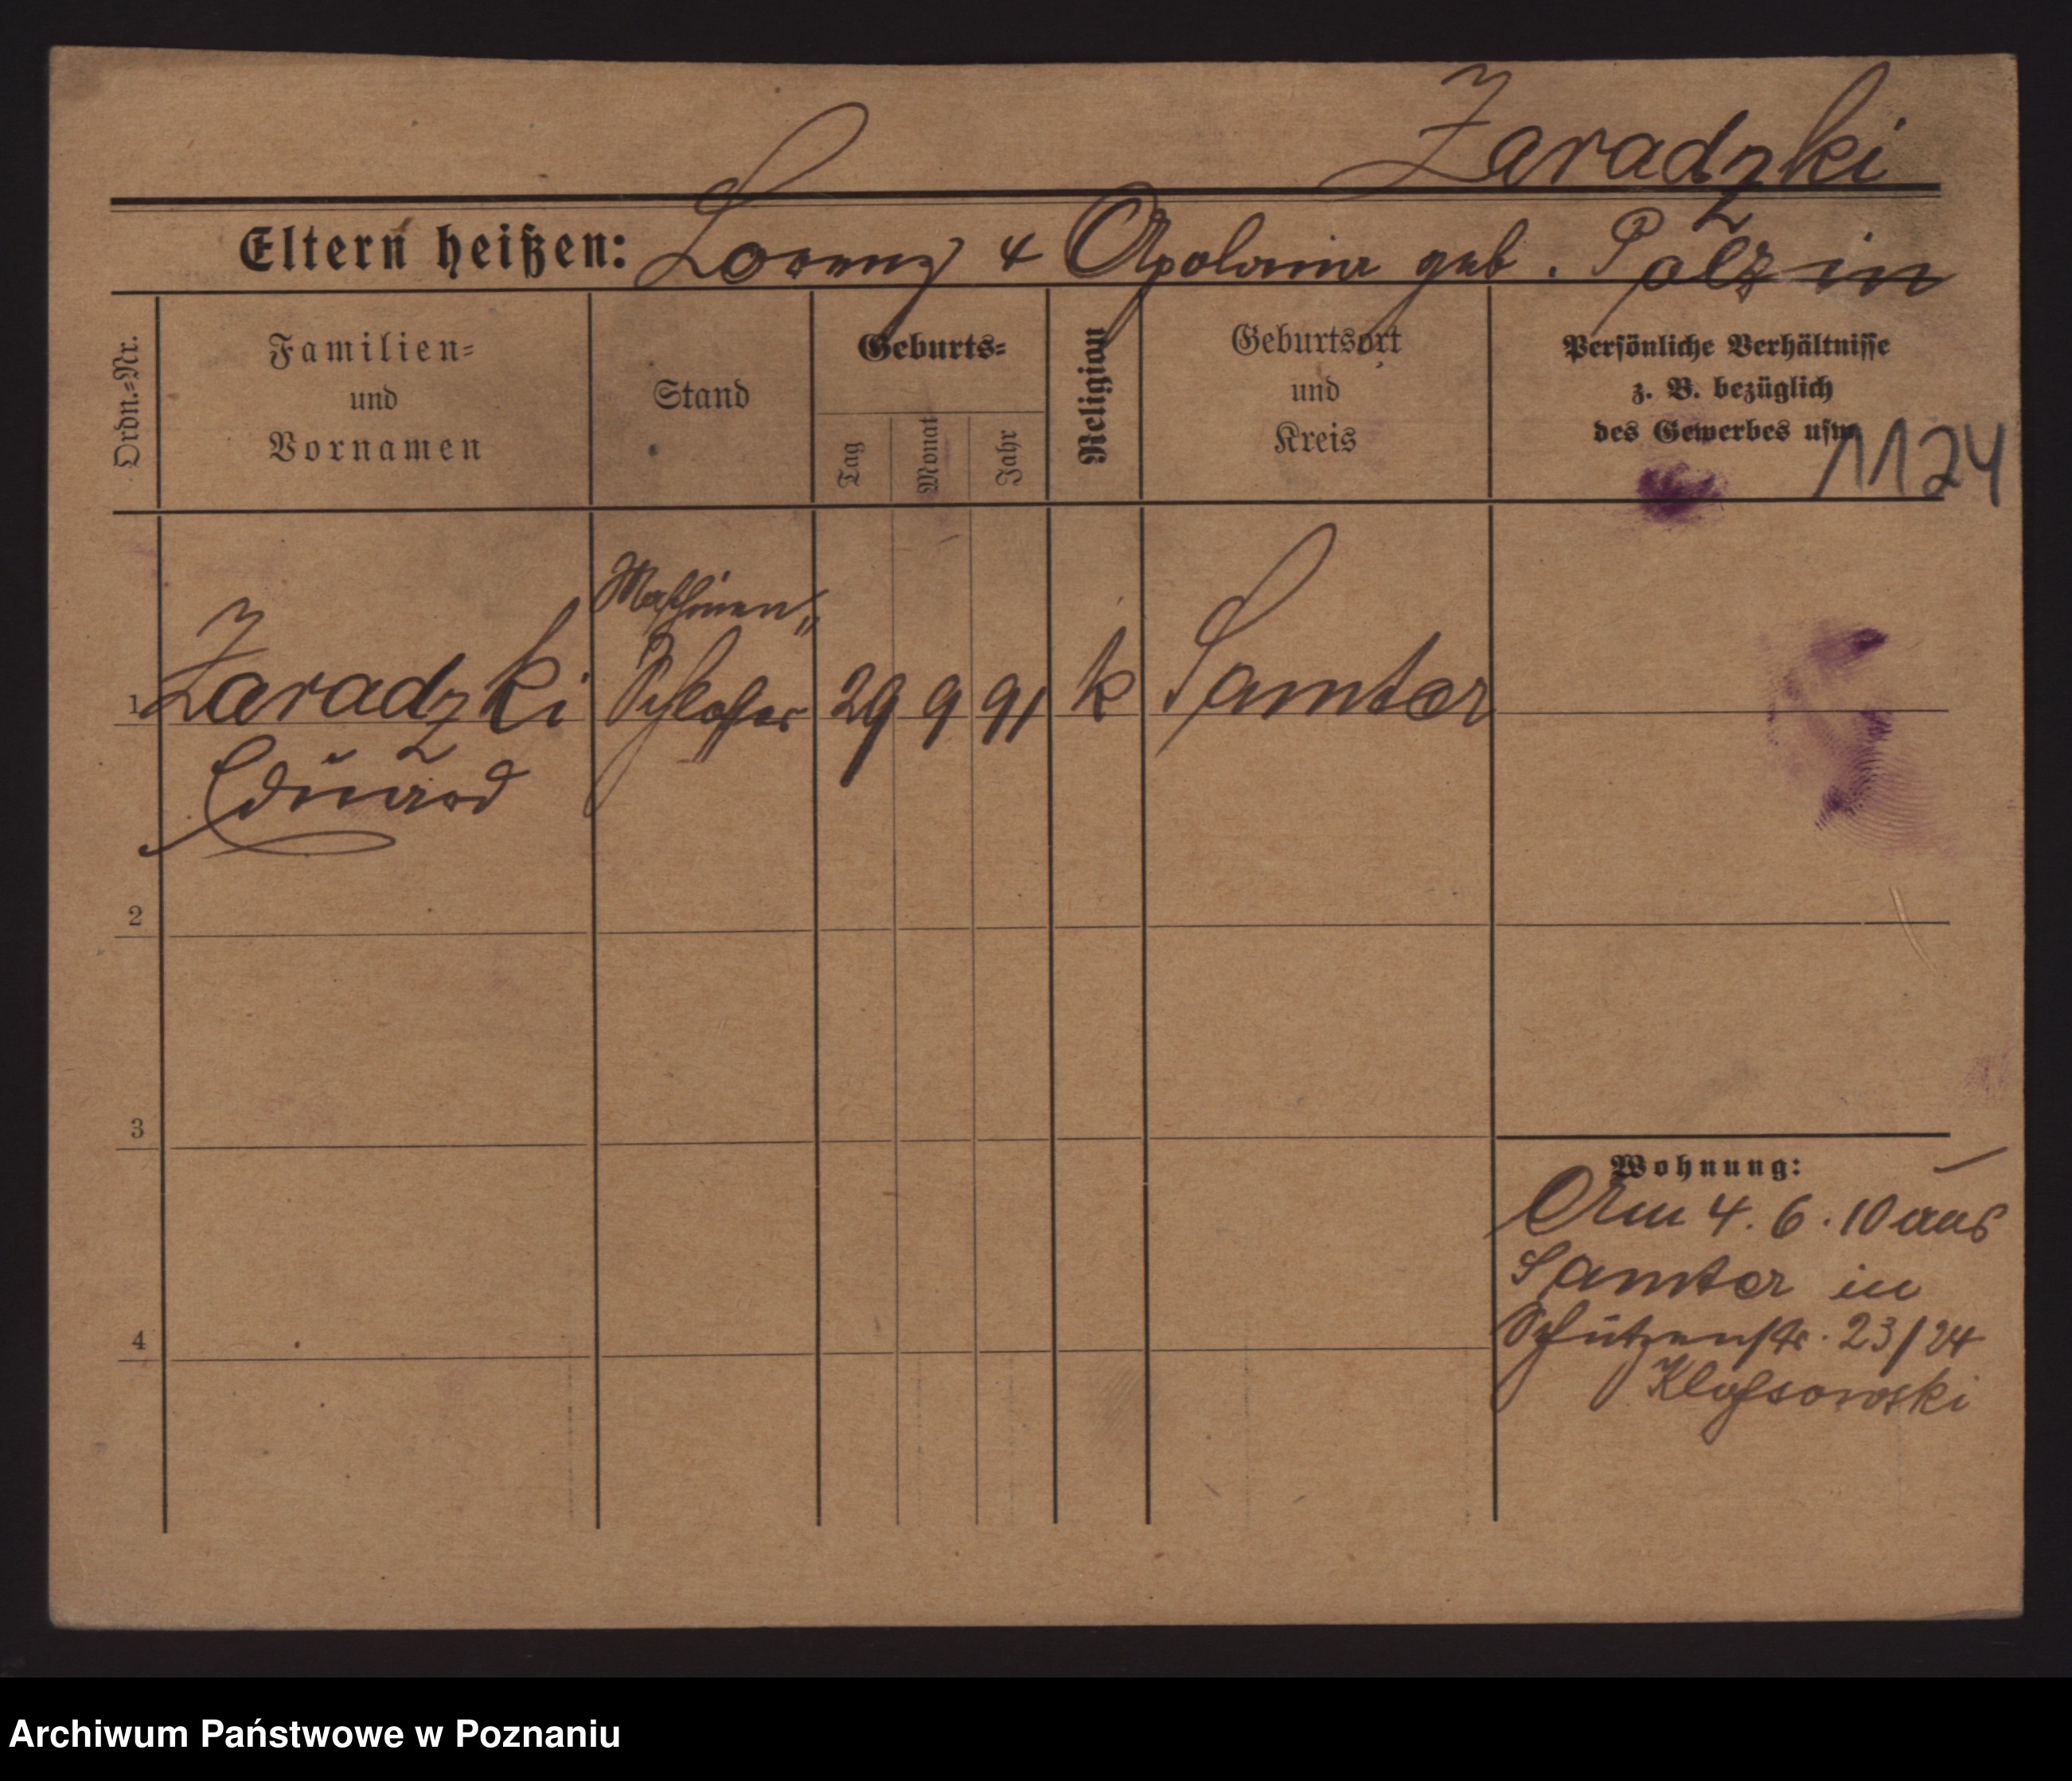 Zaradzki
Eltern heißen: Lorenz & Apolonia geb. Polzin
Ordn.=Nr.
Familien=
und
Vornamen
Stand
Geburts=
Tag
Monat
Jahr
Religion
Geburtsort
und
Kreis
Persönliche Verhältnisse
z. B. bezüglich
des Gewerbes usw.
1124
Maschinen"
1 Zaradzki Schlosser 29 9 91 k Samter
Eduard
2
3
4
Wohnung:
Am 4. 6. 10 aus
Samter in
Schützenstr. 23/24
Klossowski
Archiwum Państwowe w Poznaniu